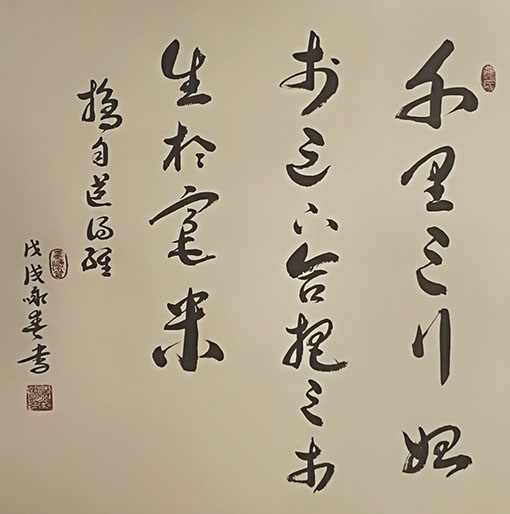 千里之行始
於足下合抱之木
生於毫末
摘自道德經
戊戌咏春書